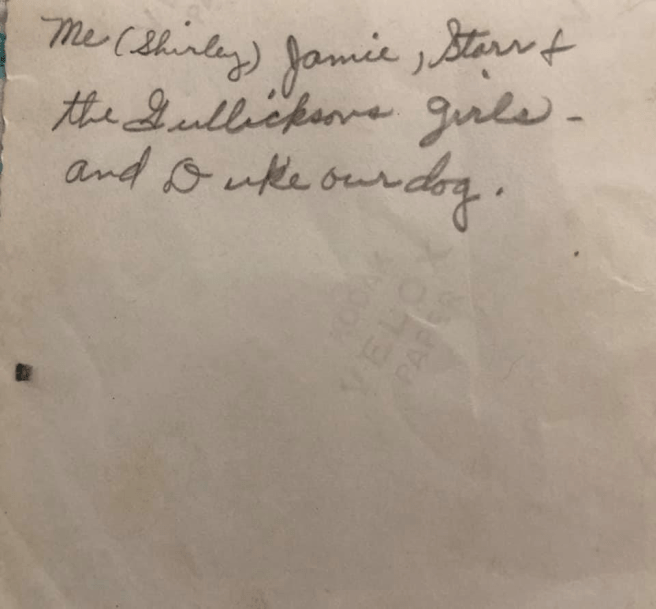 Me (Shirley) Jamie, Starr &
the Gullicksons girls -
and Duke our dog.
KODAK
VELOX
PAPER